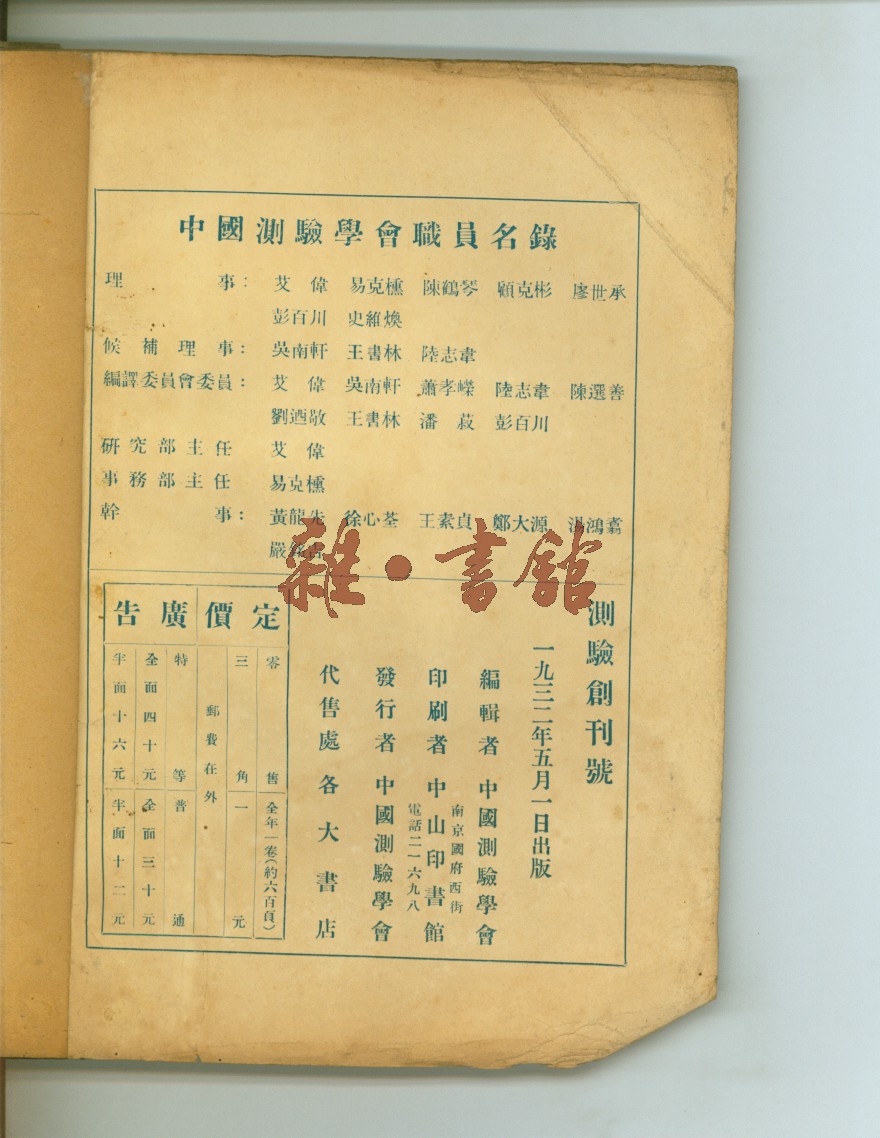 中國測驗學會職員名錄
理事： 艾偉 易克櫄 陳鶴琴 顧克彬 廖世承
彭百川 史維煥
候補理事： 吳南軒 王書林 陸志韋
編譯委員會委員： 艾偉 吳南軒 蕭孝嶸 陸志韋 陳選善
劉迺敬 王書林 潘菽 彭百川
研究部主任 艾偉
事務部主任 易克櫄
幹事： 黃龍先 徐心荃 王素貞 鄭大源 湯鴻翥
嚴
雜·書館
測驗創刊號
一九三二年五月一日出版
編輯者 中國測驗學會
南京國府西街
印刷者 中山印書館
電話二一六九八
發行者 中國測驗學會
代售處 各大書店
定價
零售 全年一卷（約六百頁）
三角 一元
郵費在外
廣告
特等 普通
全面四十元 全面三十元
半面十六元 半面十二元